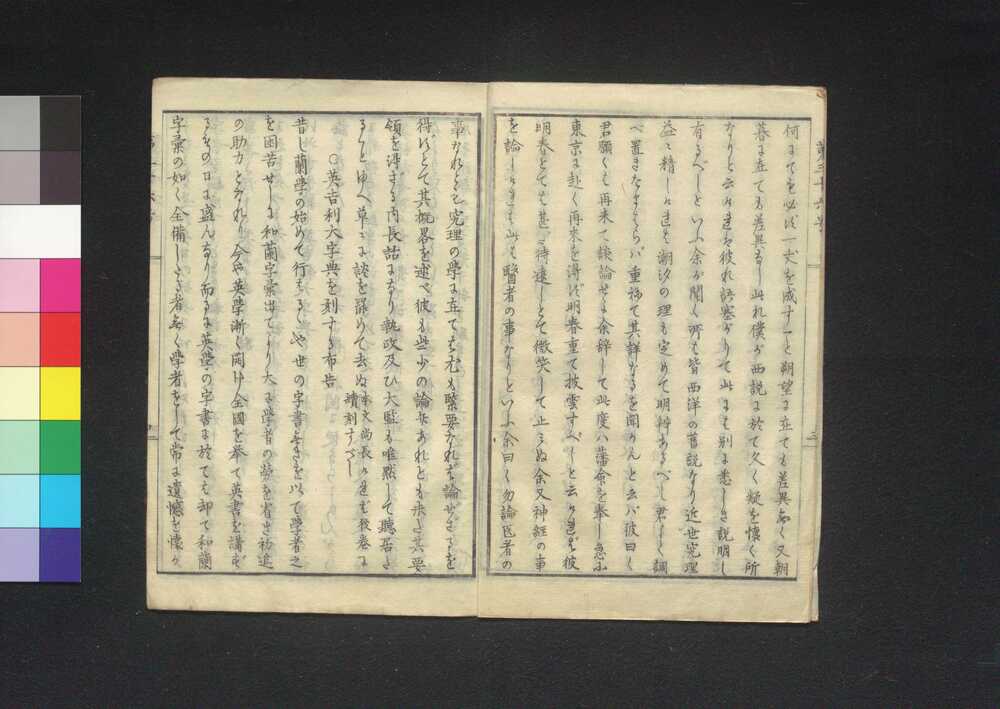 何にても必ず一丈を成すべしと期望に立ても差異なく又朝
暮に立ても差異なし此れ僕が西説に於て久く疑を懐く所
なりと云ければ彼れ語塞がりて此にも別に悉しき説明し
有るべしといふ余が聞く所は皆西洋の舊説なり近世究理
益々精しければ潮汐の理も定めて明辨あるべし君よく調
べ置きたまはらば重ねて其詳なるを聞かんと云ば彼曰く
君願くは再来て談論せよ余辞して此度ハ藩命を奉し急ぶ
東京に赴く再来を得ず明春重て披雲すべしと云ければ彼
明春とては甚だ待遠しとて微笑して止まぬ余又神経の事
を論しければ此は醫者の事なりといふ余曰く勿論医者の
事なれども究理の学に在ては尤も緊要なれば論ぜざるを
得ずとて其概略を述べ彼も些少の論はあれとも未だ其要
領を得ざる内長話になり執政及ひ大監も唯黙して聴居た
ることゆへ草々に談を罷めて去ぬ 本文尚長ければ後巻に續刻すべし
○英吉利大字典を刻する布告
昔し蘭学の始めて行わるるや世の字書なきを以て学者之
を困苦せしに和蘭字彙出てより大に学者の労を省き初進
の助力となれり今や英学漸く開け全國を挙て英書を講ず
るもの日に盛んなり而るに英學の字書に於ては却て和蘭
字彙の如く全備したる者なく学者をして常に遺憾を懐か